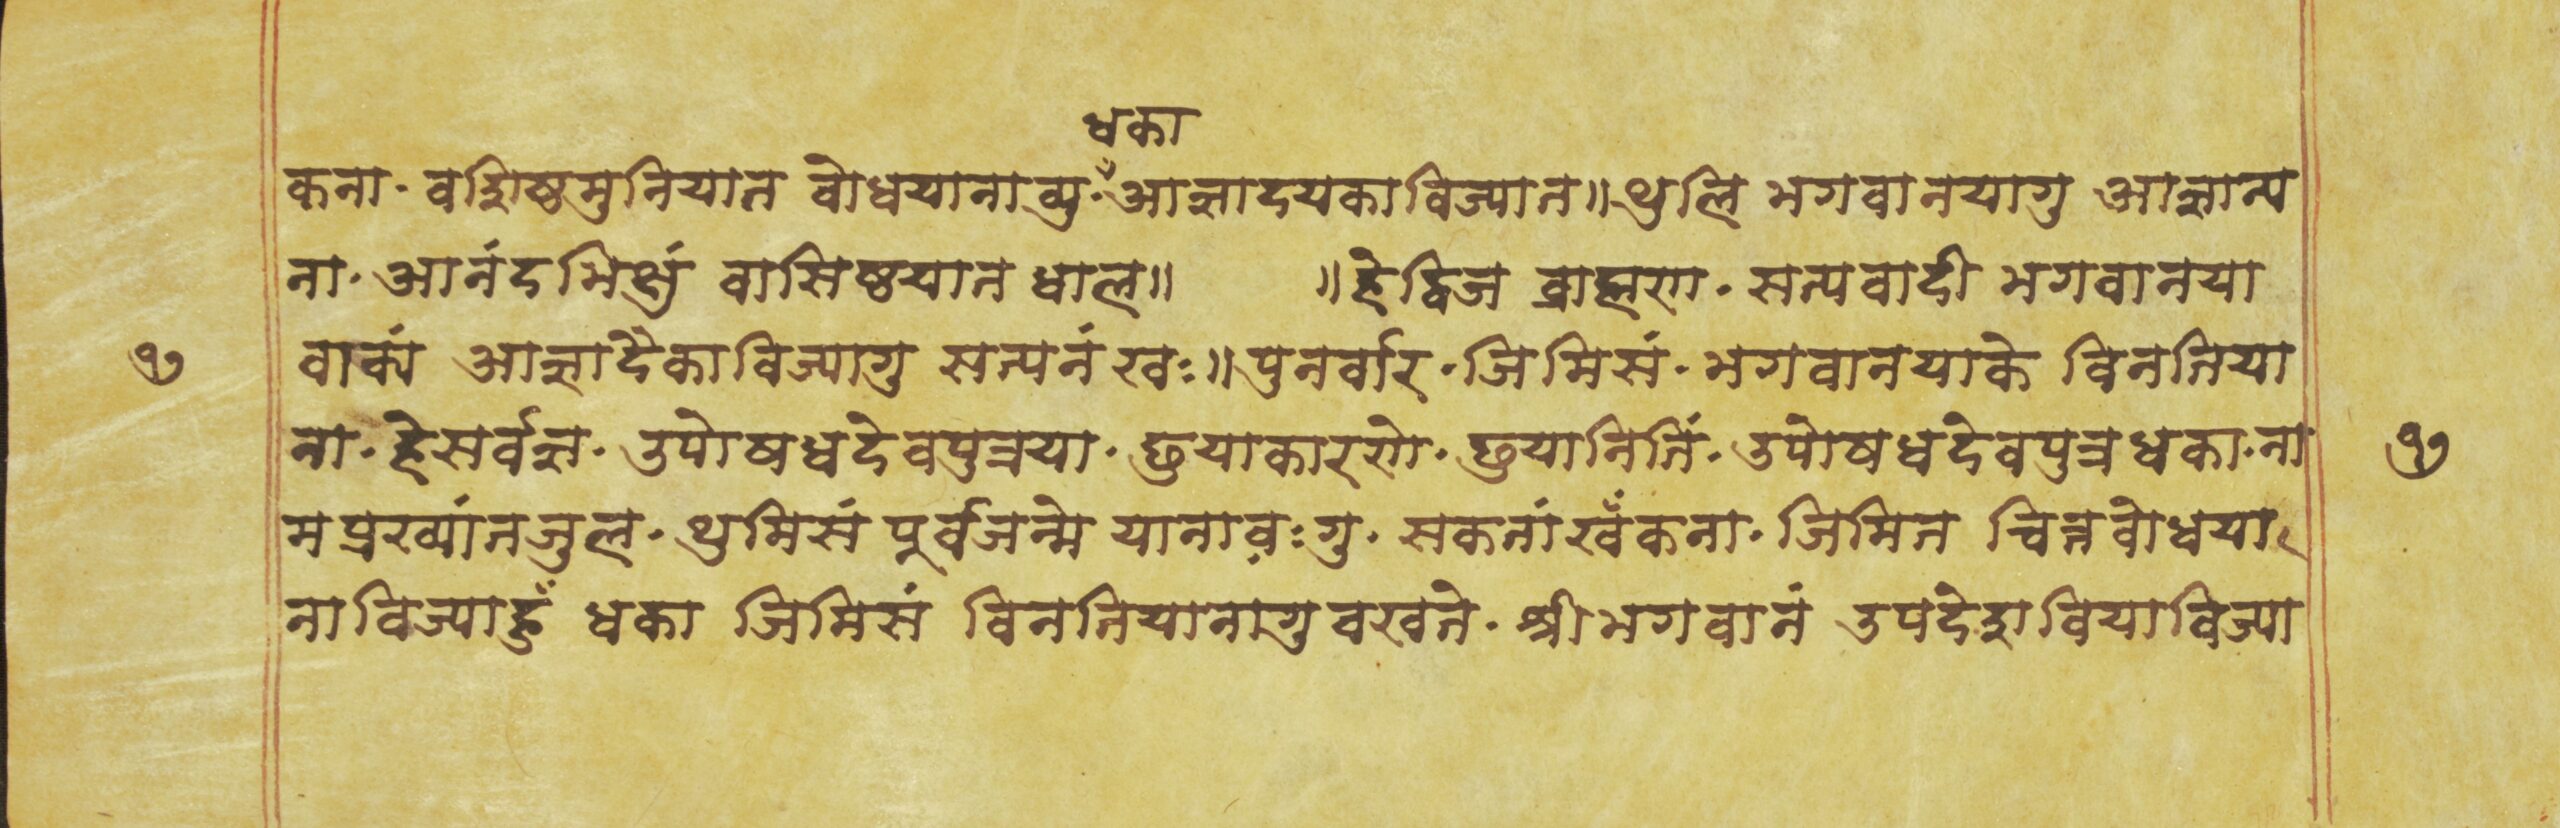 धका
कना · वशिष्ठमुनियात बोधयानाब्यु · आज्ञादयकाविज्यात॥ थुलि भगवानयागु आज्ञान्य
ना · आनंदभिक्षुं वासिष्ठयात धाल॥ ॥हे द्विज ब्राह्मण · सत्यवादी भगवानया
७ वाक्यं आज्ञादैकाविज्यागु सत्यनं खः॥ पुनर्वार · जिमिसं · भगवानयाके विनतिया
ना · हे सर्वज्ञ · उपोषधदेवपुत्रया · छुयाकारणे · छुयानितिं · उपोषधदेवपुत्र धका · ना ७
म प्रख्यांतजुल · थुमिसं पूर्वजन्मे यानावःगु · सकतां खँकना · जिमित चित्तबोधया
नाविज्याहुँ धका जिमिसं विनतियानागु बखते · श्रीभगवानं उपदेशवियाविज्या